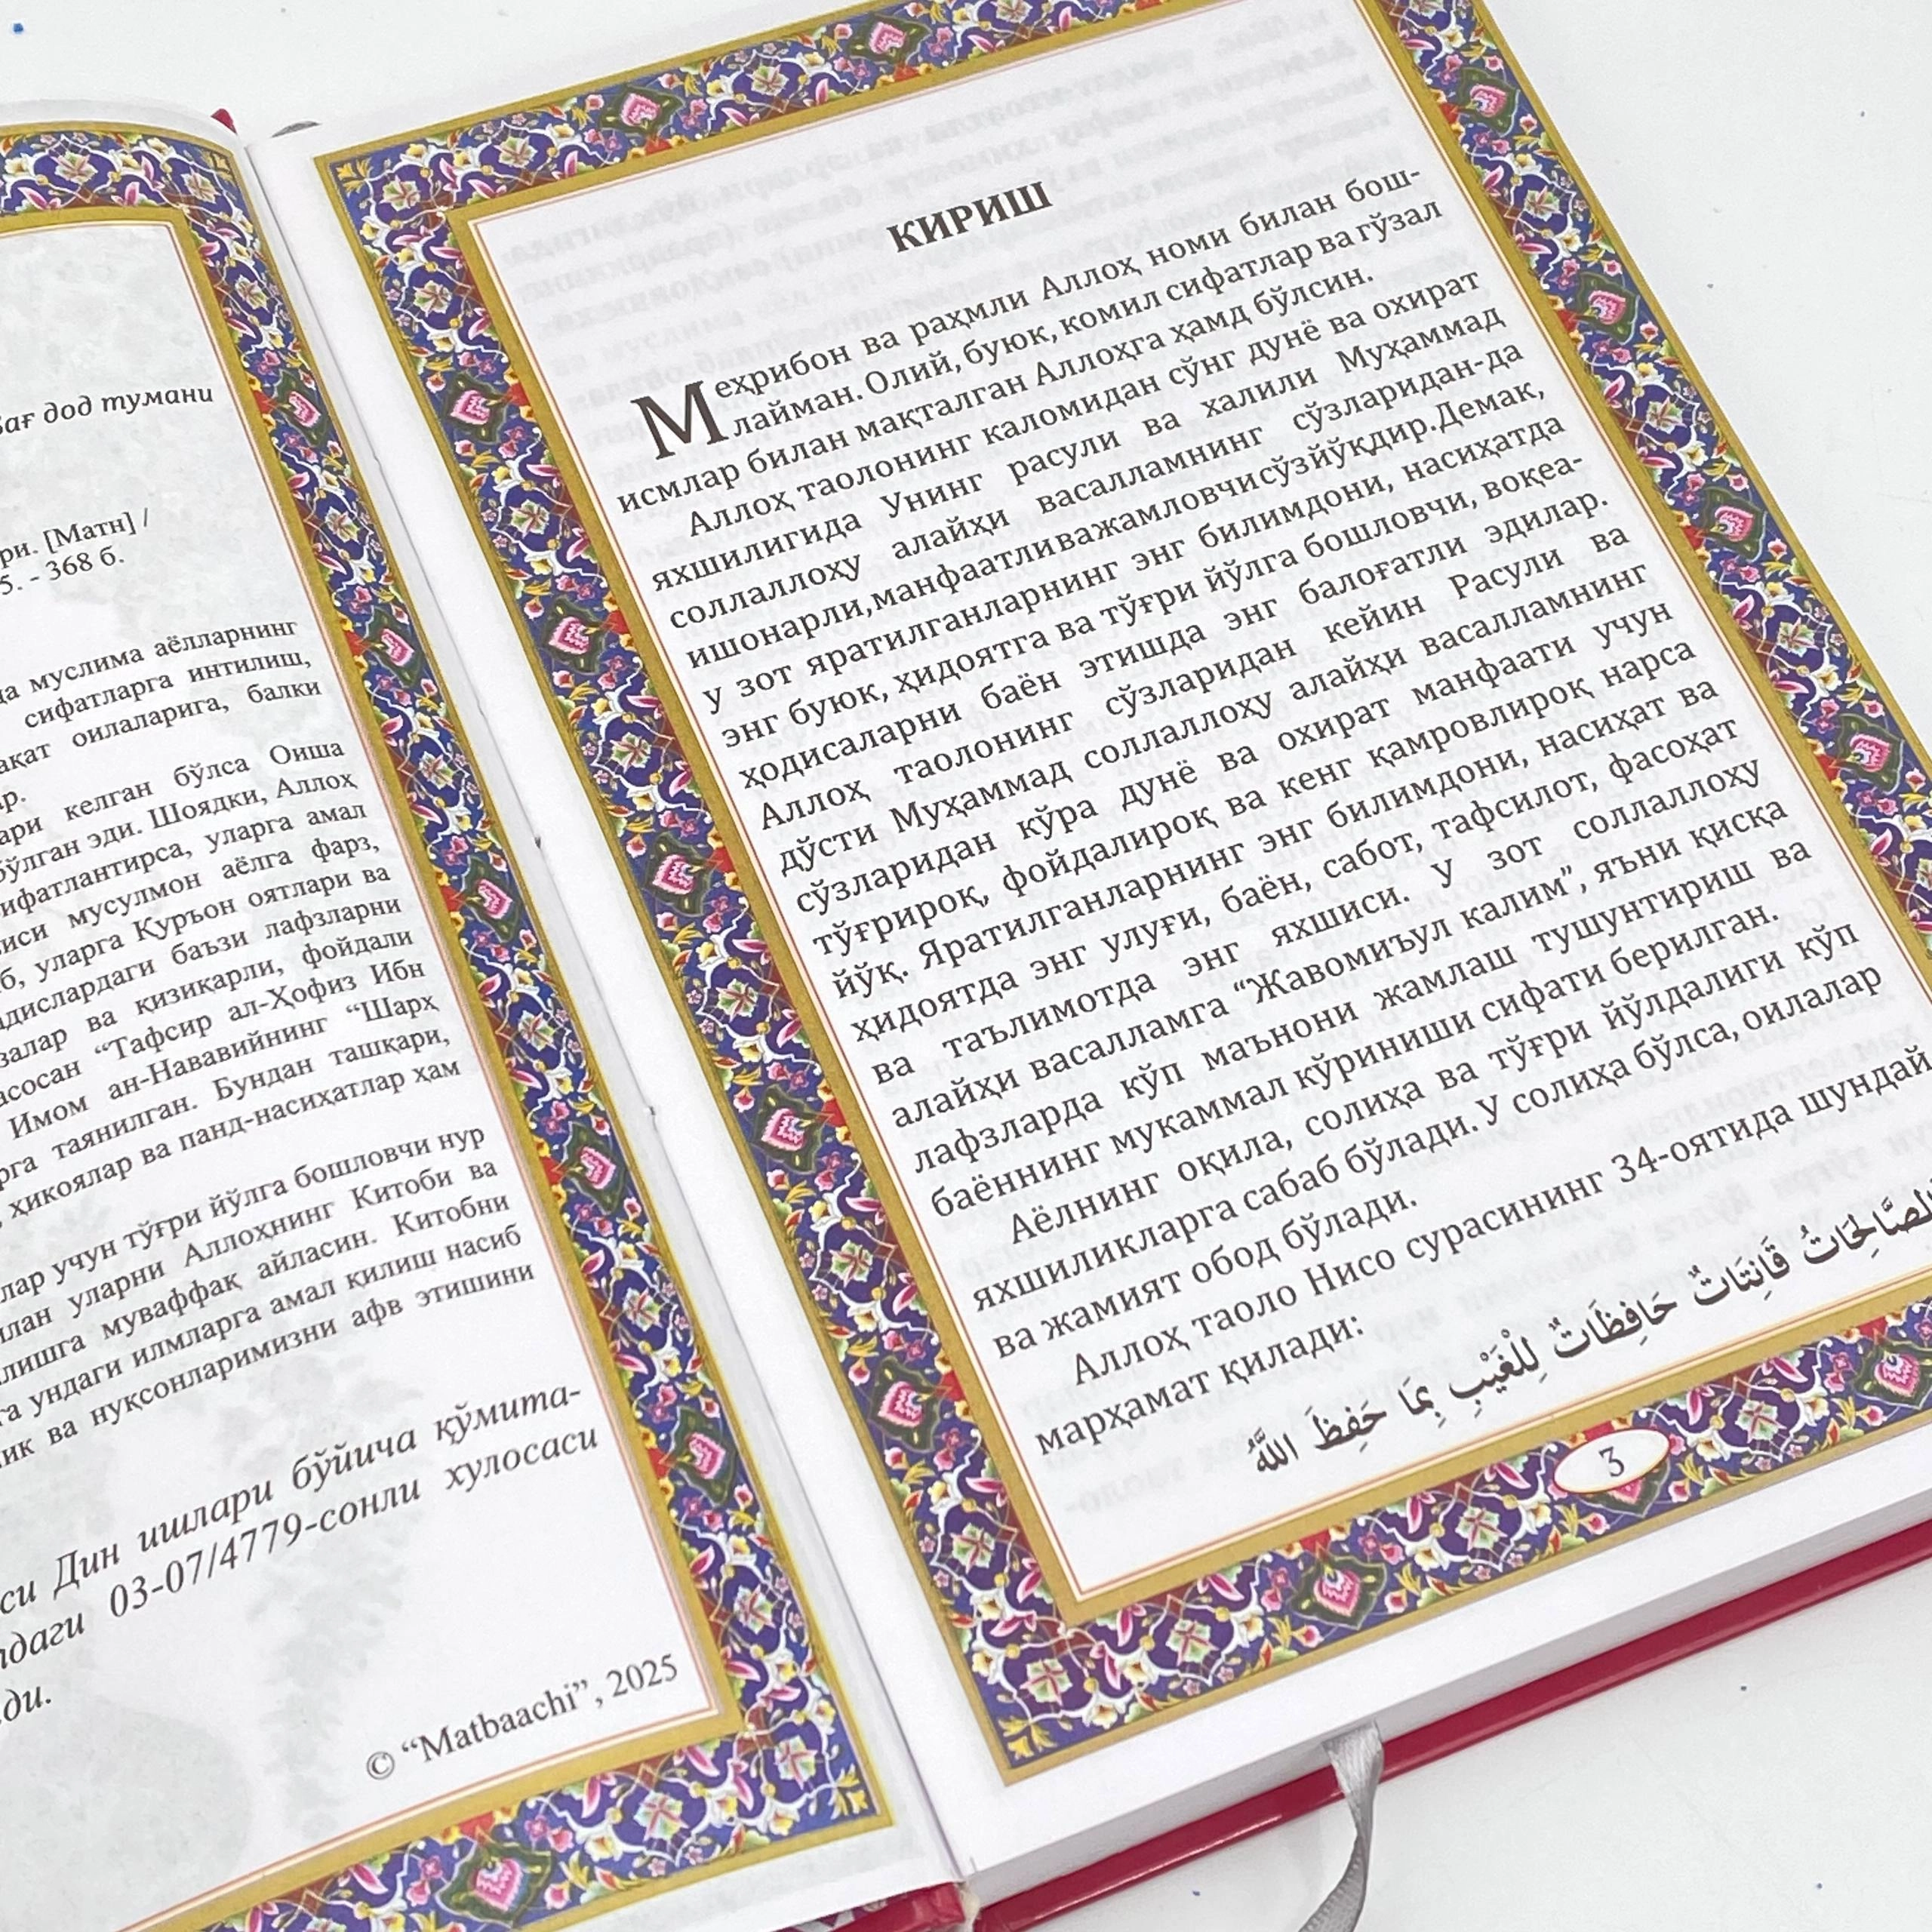 Бағ дод тумани
ри. [Матн] /
5. - 368 б.
да муслима аёлларнинг
сифатларга интилиш,
оилаларига, балки
келган бўлса Оиша
бўлган эди. Шоядки, Аллоҳ
уларга амал
мусулмон аёлга фарз,
уларга Қуръон оятлари ва
баъзи лафзларни
ва қизиқарли, фойдали
“Тафсир ал-Ҳофиз Ибн
Имом ан-Нававийнинг “Шарҳ
таянилган. Бундан ташқари,
ҳикоялар ва панд-насиҳатлар ҳам
учун тўғри йўлга бошловчи нур
уларни Аллоҳнинг Китоби ва
муваффақ айласин. Китобни
ундаги илмларга амал қилиш насиб
ва нуқсонларимизни афв этишини
Дин ишлари бўйича қўмита-
03-07/4779-сонли хулосаси
© “Matbaachi”, 2025
КИРИШ
Меҳрибон ва раҳмли Аллоҳ номи билан бош-
лайман. Олий, буюк, комил сифатлар ва гўзал
исмлар билан мақталган Аллоҳга ҳамд бўлсин.
Аллоҳ таолонинг каломидан сўнг дунё ва охират
яхшилигида Унинг расули ва халили Муҳаммад
соллаллоҳу алайҳи васалламнинг сўзларидан-да
ишонарли, манфаатли ва жамловчи сўз йўқдир. Демак,
у зот яратилганларнинг энг билимдони, насиҳатда
энг буюк, ҳидоятга ва тўғри йўлга бошловчи, воқеа-
ҳодисаларни баён этишда энг балоғатли эдилар.
Аллоҳ таолонинг сўзларидан кейин Расули ва
дўсти Муҳаммад соллаллоҳу алайҳи васалламнинг
сўзларидан кўра дунё ва охират манфаати учун
тўғрироқ, фойдалироқ ва кенг қамровлироқ нарса
йўқ. Яратилганларнинг энг билимдони, насиҳат ва
ҳидоятда энг улуғи, баён, сабот, тафсилот, фасоҳат
ва таълимотда энг яхшиси. У зот соллаллоҳу
алайҳи васалламга “Жавомиъул калим”, яъни қисқа
лафзларда кўп маънони жамлаш тушунтириш ва
баённинг мукаммал кўриниши сифати берилган.
Аёлнинг оқила, солиҳа ва тўғри йўлдалиги кўп
яхшиликларга сабаб бўлади. У солиҳа бўлса, оилалар
ва жамият обод бўлади.
Аллоҳ таоло Нисо сурасининг 34-оятида шундай
марҳамат қилади:
قَانِتَاتٌ حَافِظَاتٌ لِلْغَيْبِ بِمَا حَفِظَ اللَّهُ
3